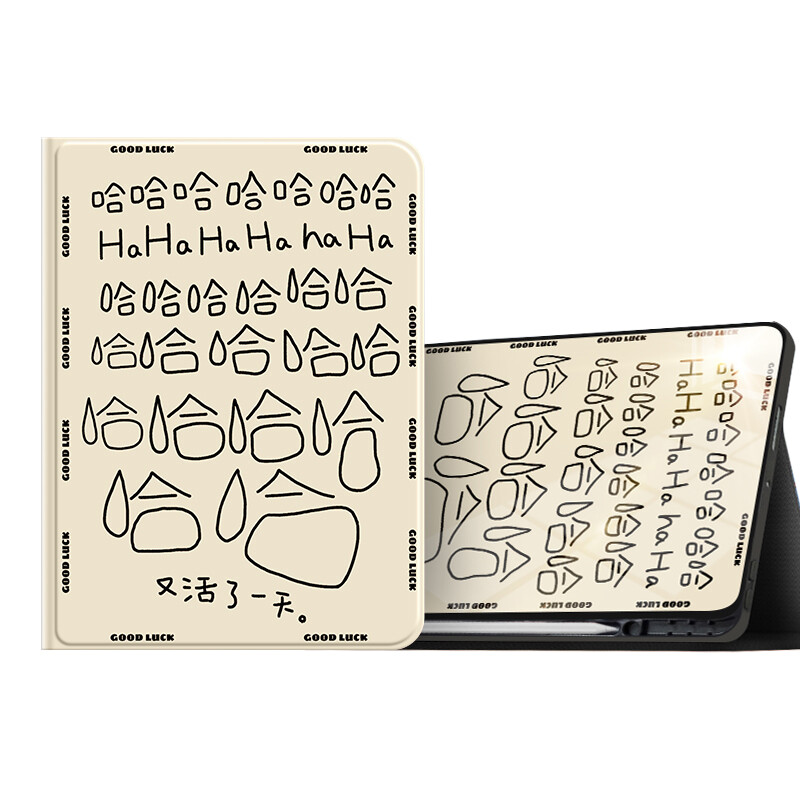 GOOD LUCK GOOD LUCK
哈哈哈哈哈哈哈
HaHaHaHahaHa
哈哈哈哈哈哈
哈哈哈哈哈
哈哈哈哈
哈哈
又活了一天。
GOOD LUCK GOOD LUCK
GOOD LUCK
GOOD LUCK
GOOD LUCK
GOOD LUCK
GOOD LUCK
GOOD LUCK
GOOD LUCK
GOOD LUCK
GOOD LUCK GOOD LUCK GOOD LUCK GOOD LUCK
哈哈哈哈哈哈哈
HaHaHaHahaHa
哈哈哈哈哈哈
哈哈哈哈哈
哈哈哈哈
GOOD LUCK
GOOD LUCK
GOOD LUCK GOOD LUCK GOOD LUCK GOOD LUCK